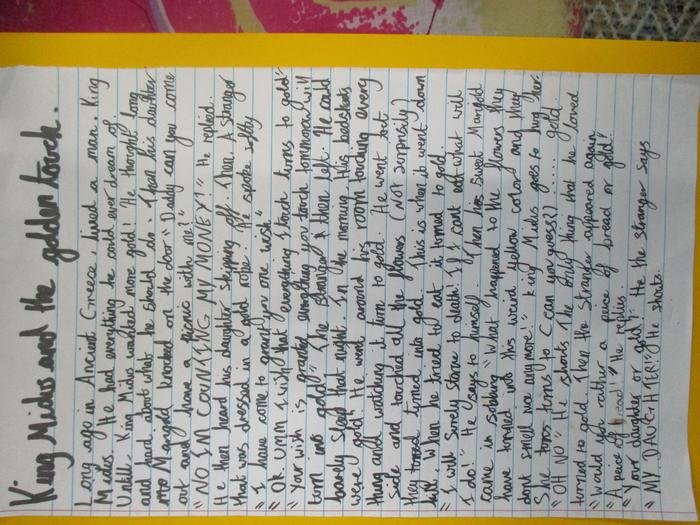 King Midus and the golden touch.
Long ago in Ancient Greece, lived a man, King
Midus. He had everything he could ever dream of
Untill King Midus wanted more gold. He thought long
and hard about what he should do. Then his daughter
Marigold knocked on the door "Daddy can you come
out and have a picnic with me?"
"NO IM COUNTING MY MONEY!" He replied.
He then heard his daughter skipping off. Then A stranger
that was dressed in a gold robe. He spoke softly
"I have come to grant you one wish"
"OK UMM I wish that everything I touch turns to gold"
"Your wish is granted everything you touch tommorow will
turn into gold" The stranger then left. He could
barely sleep that night. In the morning, His bedsheets
were gold! He went around his room touching every
thing and watching it turn to gold. He went out
side and touched all the flowers (NOT Surprisily)
they turned into gold. This is when it went down
hill. When he tried to eat it turned to gold.
"I will Surely Starve to death! If I cant eat what will
I do!" He says to himself. Then his sweet Marigold
came in sobbing "What happened to the flowers they
have turned into this weird yellow colour and they
dont smell nice any more!" King Midus goes to hug her.
She turns to (can you guess?) ..... gold.
"OH NO" He shouts The only thing that he loved
turned to gold. Then the Stranger appeared again
"Would you rather a peice of bread or gold"
"A peice of bread!" He replies.
"Your daughter or gold" the stranger says
"MY DAUGHTER!" He shouts.